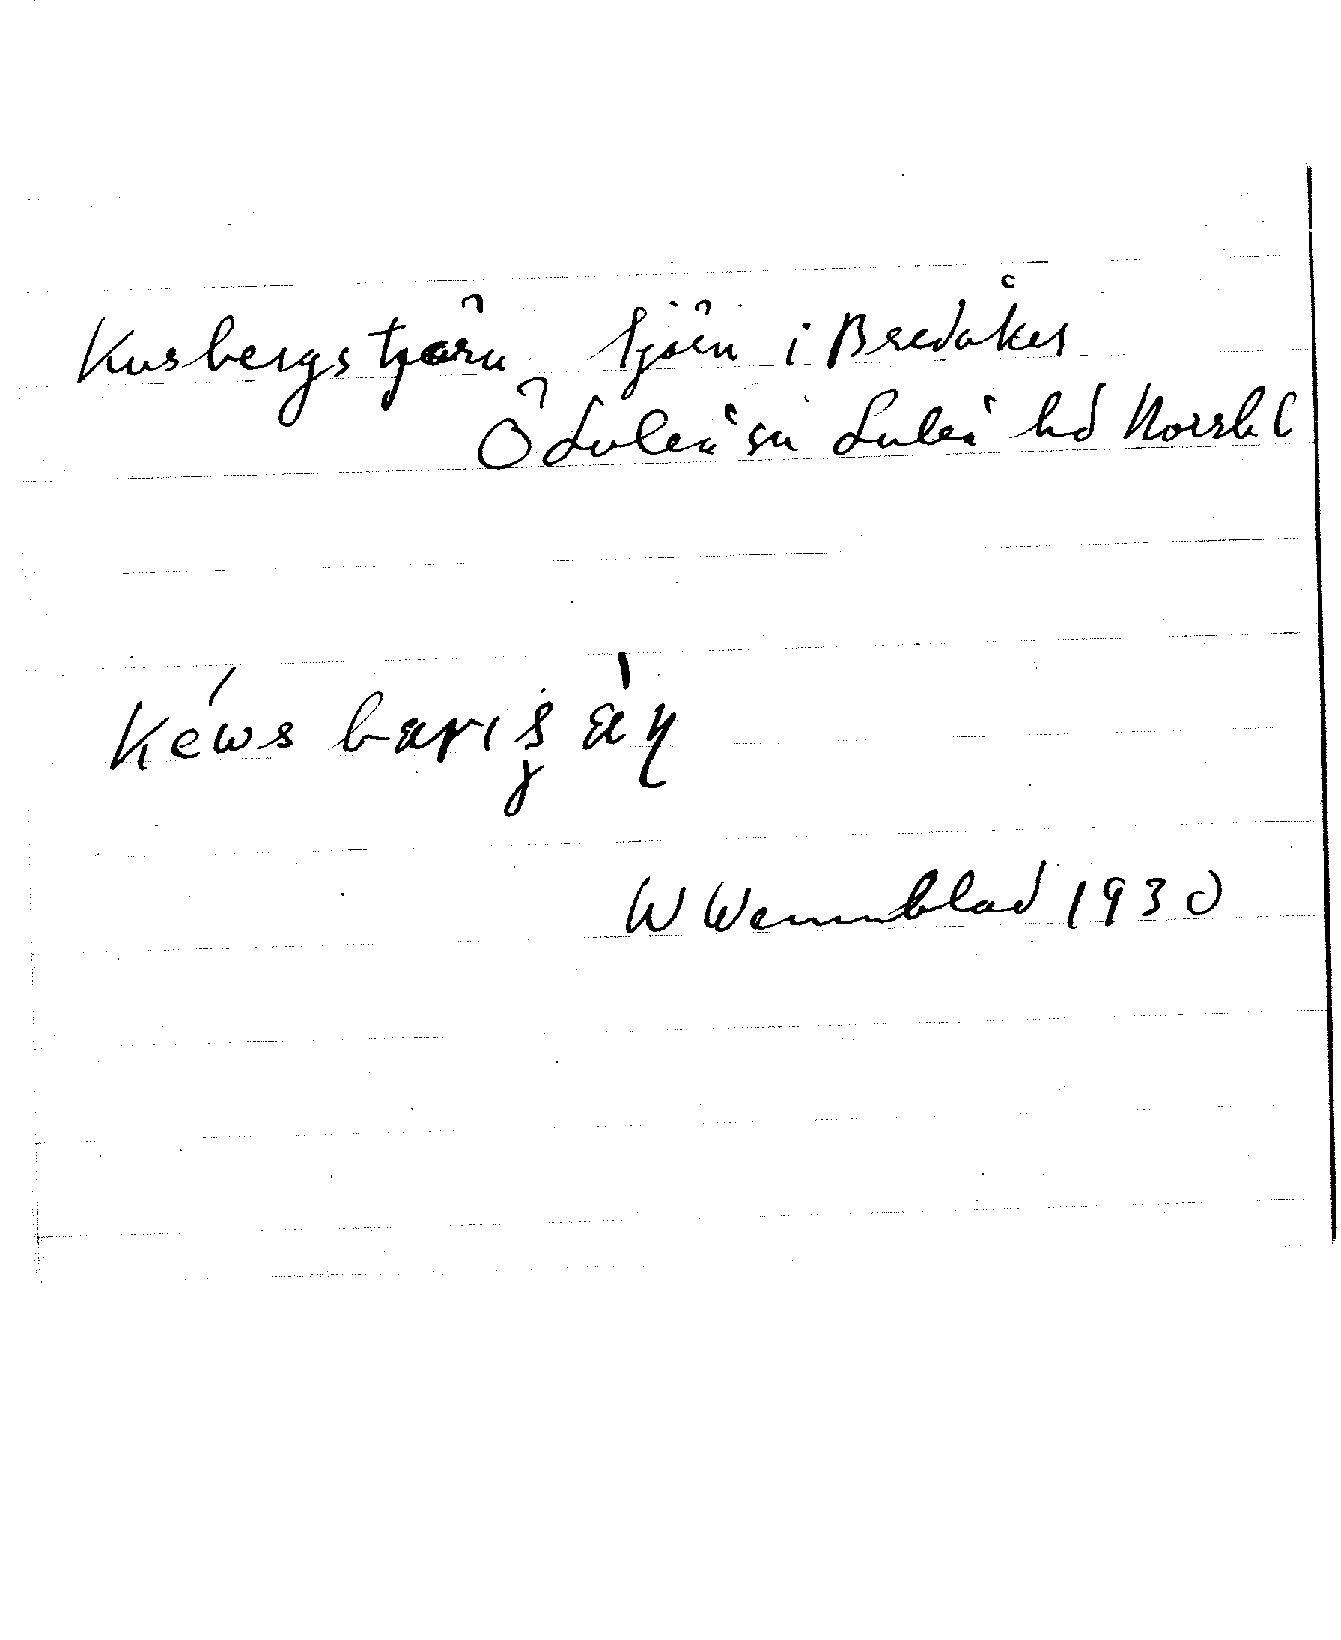 Kusbergstjärn tjärn i Bredåker
Ö Luleå sn Luleå hd Norrb l
W Wennblad 1930